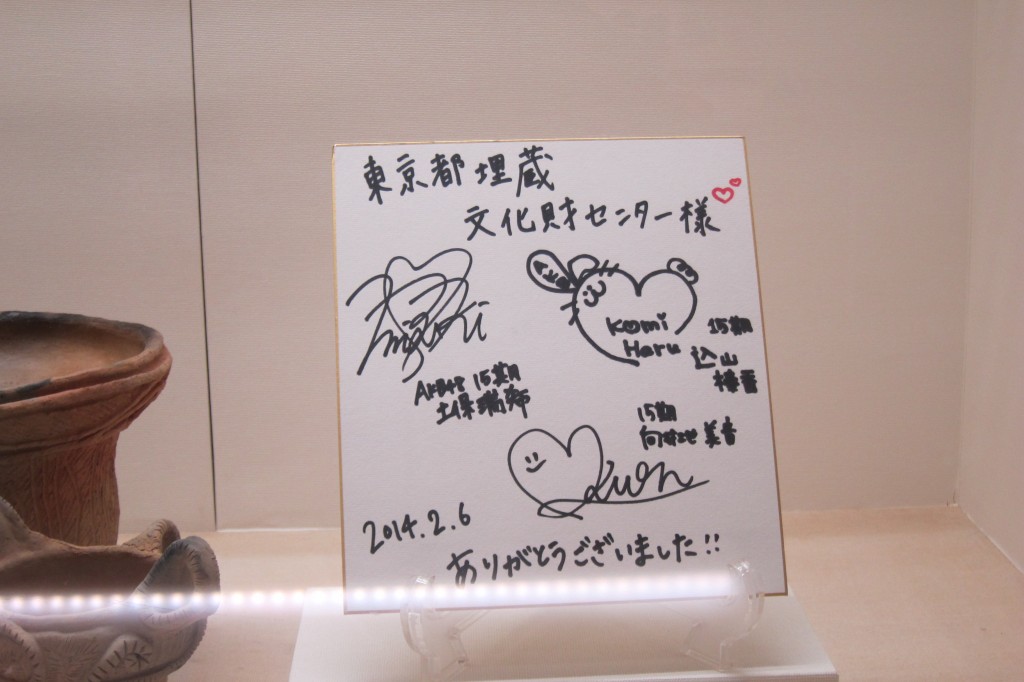 東京都埋蔵
文化財センター様
AKB
Komi
Haru
15期
込山
榛香
AKB48 15期
土保瑞希
15期
向井地 美音
2014.2.6
ありがとうございました!!